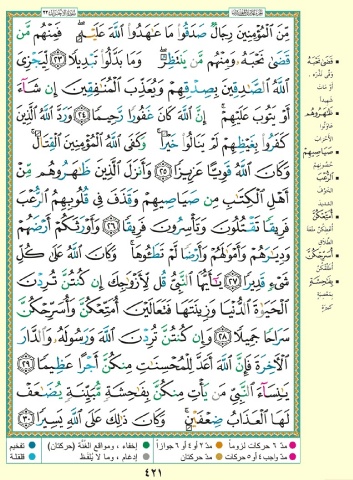 مِّنَ ٱلْمُؤْمِنِينَ رِجَالٌ صَدَقُوا۟ مَا عَٰهَدُوا۟ ٱللَّهَ عَلَيْهِ ۖ فَمِنْهُم مَّن
قَضَىٰ نَحْبَهُۥ وَمِنْهُم مَّن يَنتَظِرُ ۖ وَمَا بَدَّلُوا۟ تَبْدِيلًا ٢٣ لِّيَجْزِىَ
ٱللَّهُ ٱلصَّٰدِقِينَ بِصِدْقِهِمْ وَيُعَذِّبَ ٱلْمُنَٰفِقِينَ إِن شَآءَ
أَوْ يَتُوبَ عَلَيْهِمْ ۚ إِنَّ ٱللَّهَ كَانَ غَفُورًا رَّحِيمًا ٢٤ وَرَدَّ ٱللَّهُ ٱلَّذِينَ
كَفَرُوا۟ بِغَيْظِهِمْ لَمْ يَنَالُوا۟ خَيْرًا ۚ وَكَفَى ٱللَّهُ ٱلْمُؤْمِنِينَ ٱلْقِتَالَ ۚ
وَكَانَ ٱللَّهُ قَوِيًّا عَزِيزًا ٢٥ وَأَنزَلَ ٱلَّذِينَ ظَٰهَرُوهُم مِّنْ
أَهْلِ ٱلْكِتَٰبِ مِن صَيَاصِيهِمْ وَقَذَفَ فِى قُلُوبِهِمُ ٱلرُّعْبَ
فَرِيقًا تَقْتُلُونَ وَتَأْسِرُونَ فَرِيقًا ٢٦ وَأَوْرَثَكُمْ أَرْضَهُمْ
وَدِيَٰرَهُمْ وَأَمْوَٰلَهُمْ وَأَرْضًا لَّمْ تَطَـُٔوهَا ۚ وَكَانَ ٱللَّهُ عَلَىٰ كُلِّ
شَىْءٍ قَدِيرًا ٢٧ يَٰٓأَيُّهَا ٱلنَّبِىُّ قُل لِّأَزْوَٰجِكَ إِن كُنتُنَّ تُرِدْنَ
ٱلْحَيَوٰةَ ٱلدُّنْيَا وَزِينَتَهَا فَتَعَالَيْنَ أُمَتِّعْكُنَّ وَأُسَرِّحْكُنَّ
سَرَاحًا جَمِيلًا ٢٨ وَإِن كُنتُنَّ تُرِدْنَ ٱللَّهَ وَرَسُولَهُۥ وَٱلدَّارَ
ٱلْـَٔاخِرَةَ فَإِنَّ ٱللَّهَ أَعَدَّ لِلْمُحْسِنَٰتِ مِنكُنَّ أَجْرًا عَظِيمًا ٢٩
يَٰنِسَآءَ ٱلنَّبِىِّ مَن يَأْتِ مِنكُنَّ بِفَٰحِشَةٍ مُّبَيِّنَةٍ يُضَٰعَفْ
لَهَا ٱلْعَذَابُ ضِعْفَيْنِ ۚ وَكَانَ ذَٰلِكَ عَلَى ٱللَّهِ يَسِيرًا ٣٠
قَضَى نَحْبَهُ
ظَاهَرُوهُم
صَيَاصِيهِمْ
الرُّعْبَ
أُمَتِّعْكُنَّ
أُسَرِّحْكُنَّ
بِفَاحِشَةٍ
مدّ ٦ حركات لزوماً
مدّ ٢ أو ٤ أو ٦ جوازاً
إخفاء، ومواقع الغنّة (حركتان)
تفخيم
مدّ واجب ٤ أو ٥ حركات
مدّ حركتان
إدغام، وما لا يُلفظ
قلقلة
٤٢١